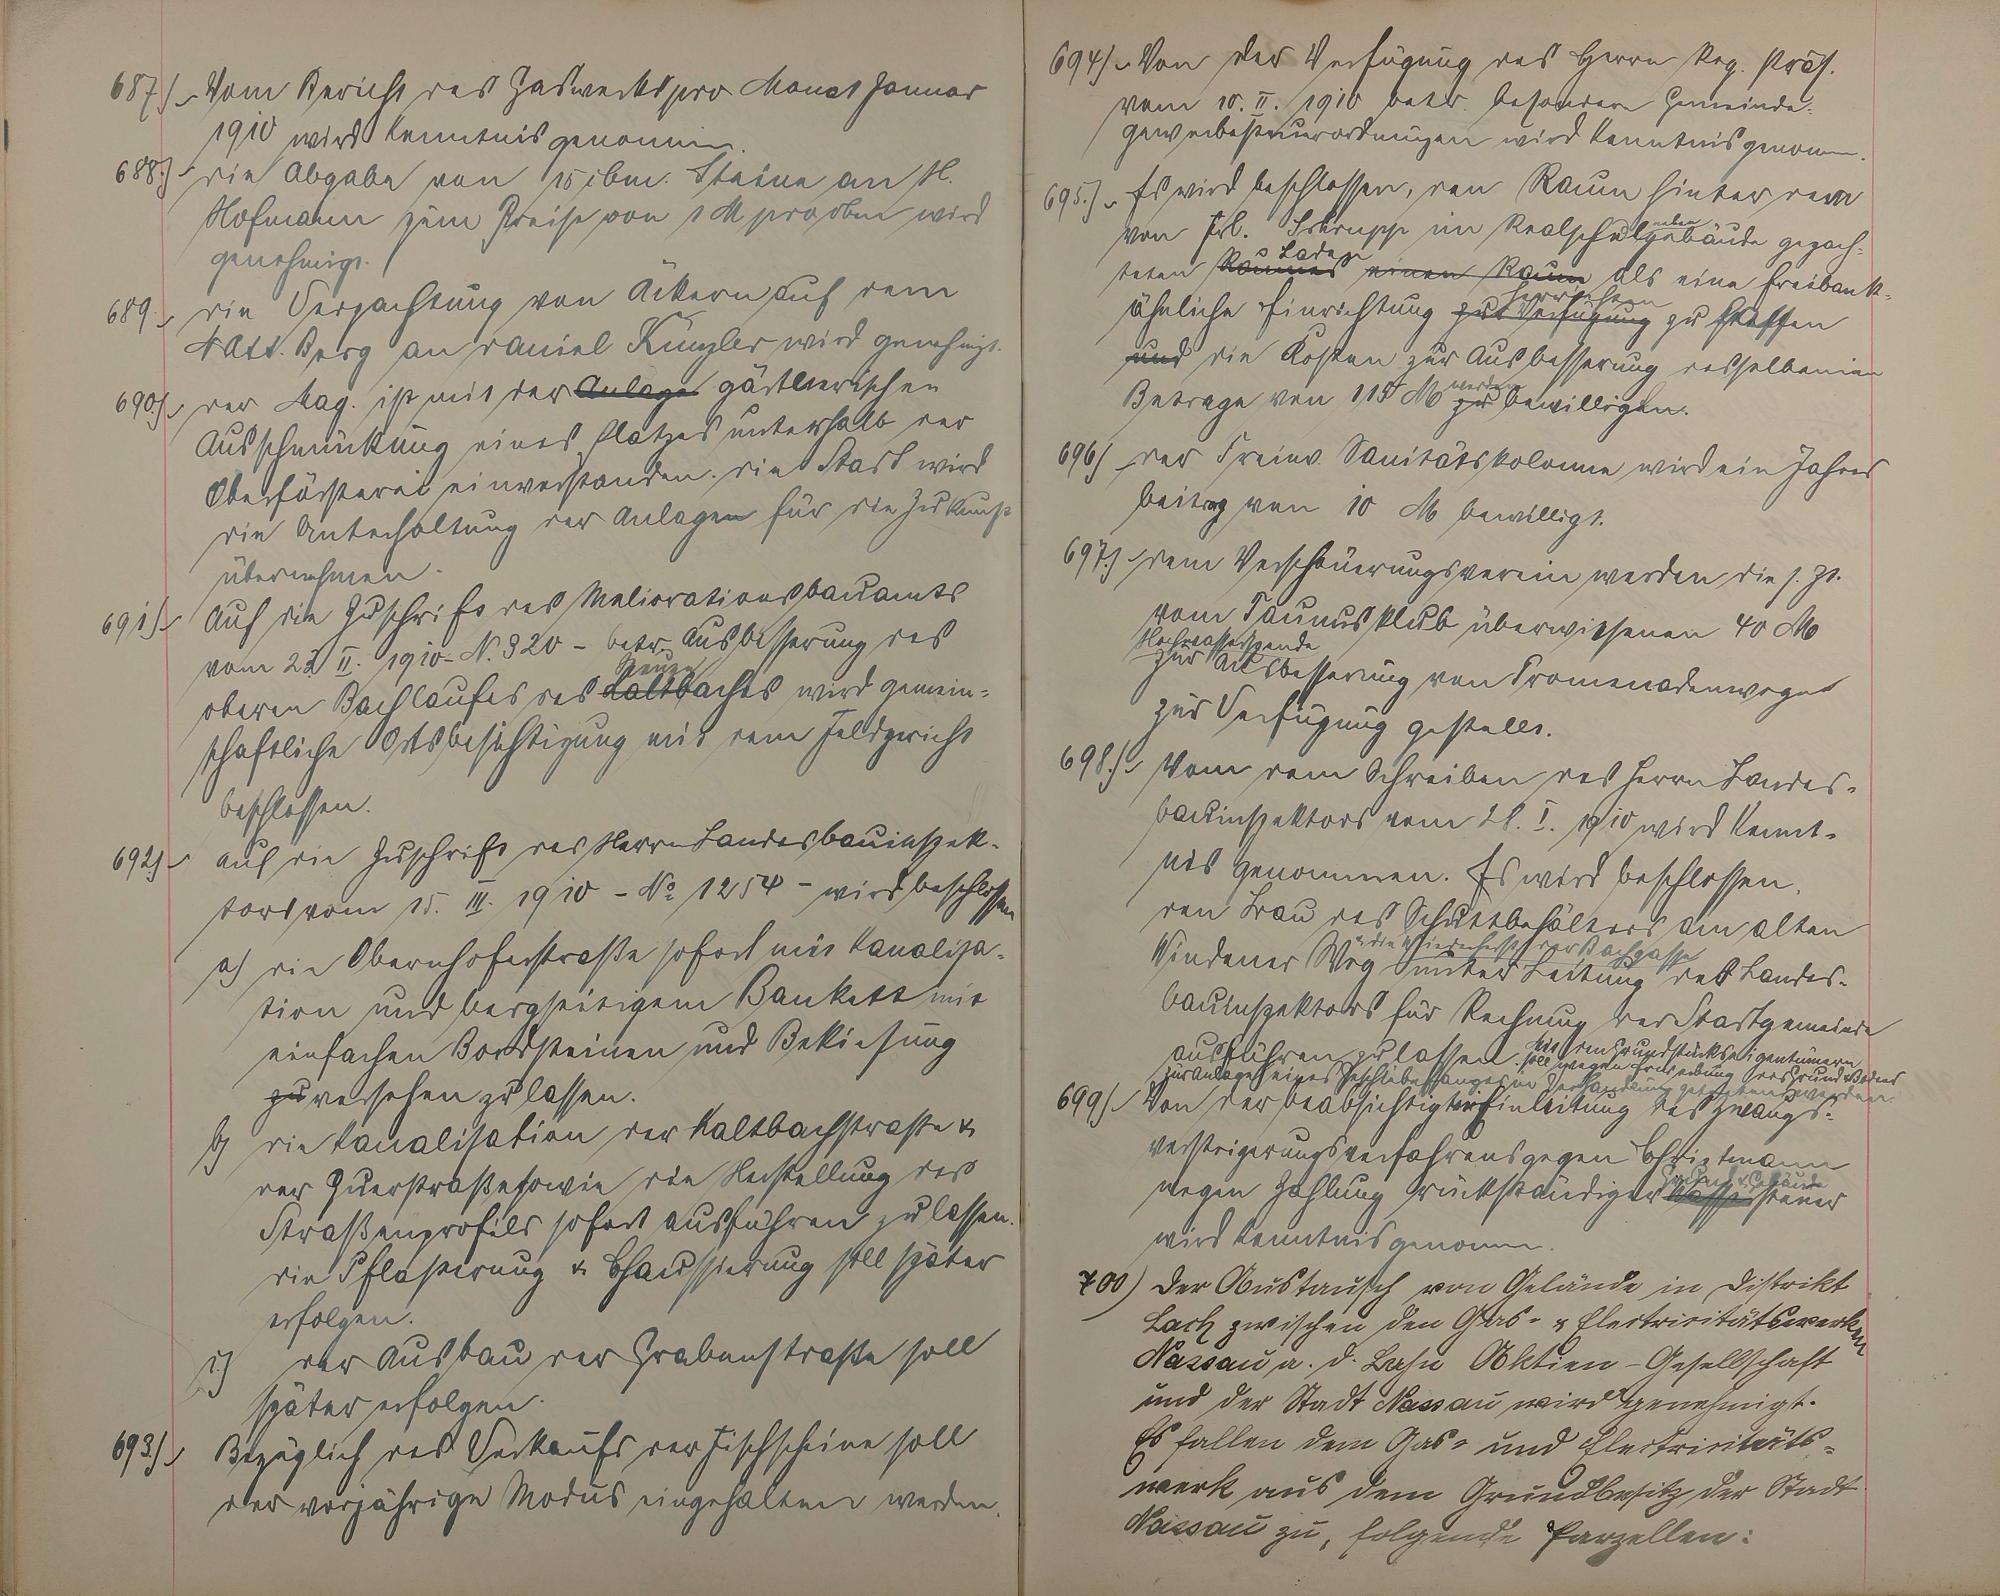 687.) Vom Bericht des Gaswerks pro Monat Januar
1910 wird Kenntnis genommen.
688.) Die Abgabe von 15 cbm. Steine an H.
Hofmann zum Preise von 1 M pro cbm wird
genehmigt.
689. Die Verpachtung von Äckern auf dem
Natt. Berg an Daniel Künzler wird genehmigt.
690.) Der Mag. ist mit der Anlage gärtnerischen
Ausschmückung eines Platzes unterhalb der
Oberförsterei einverstanden. Die Stadt wird
die Unterhaltung der Anlagen für die Zukunft
übernehmen.
691.) Auf die Zuschrift des Meliorationsbauamts
vom 23. II. 1910 - N. 320 - betr. Ausbesserung des
neuen
oberen Bachlaufes des Kaltbaches wird gemein-
schaftliche Ortsbesichtigung mit dem Feldgericht
beschlossen.
692.) Auf die Zuschrift des Herrn Landesbauinspek-
tors vom 15. III. 1910 - No 1254 - wird beschlossen
a) die Obernhoferstraße sofort mit Kanalisa-
tion und bergseitigem Bankett mit
einfachen Bordsteinen und Bekiesung
zu versehen zu lassen.
b) die Kanalisation der Kaltbachstraße &
der Querstraße sowie die Herstellung des
Straßenprofils sofort ausführen zu lassen.
Die Pflasterung & Chaussierung soll später
erfolgen.
c) der Ausbau der Grabenstraße soll
später erfolgen.
693.) Bezüglich des Verkaufs der Fischscheine soll
der vorjährige Modus eingehalten werden.
694.) Von der Verfügung des Herrn Reg. Präs.
vom 10. II. 1910 betr. besondere Gemeinde-
gewerbesteuerordnungen wird Kenntnis genomm.
695.) Es wird beschlossen, den Raum hinter dem
von Frl. im Realschulgebäude gepach-
Laden
teten Raumes einen Raum als eine freibank-
herrichten
ähnliche Einrichtung zur Verfügung zu stellen
und die Kosten zur Ausbesserung desselben im
werden
Betrage von 115 M zu bewilligen.
696.) Der Freiw. Sanitätskolonne wird ein Jahres
beitrag von 10 M bewilligt.
697.) Dem Verschönerungsverein werden die s. Zt.
vom Taunusklub überwiesenen 40 M
Hochwasserspende
zur Ausbesserung von Promenadenwegen
zur Verfügung gestellt.
698.) Vom dem Schreiben des Herrn Landes-
bauinspektors vom 28. I. 1910 wird Kennt-
nis genommen. Es wird beschlossen,
den Bau des Schuttbehälters am alten
u. die Wiederherst. der Bachgasse
Windener Weg unter Leitung des Landes-
bauinspektors für Rechnung der Stadtgemeinde
ausführen zu lassen. Mit den Grundstückseigentümern
soll wegen des Grund & Bodens
zur Anlage eines Geschiebefanges in Verhandlung getreten werden.
699.) Von der beabsichtigten Einleitung des Zwangs-
versteigerungsverfahrens gegen Christmann
Grund & Gebäude
wegen Zahlung rückständiger steuer
wird Kenntnis genomm.
700) Der Austausch von Gelände in Distrikt
Lach zwischen den Gas- & Electricitätswerken
Nassau a. d. Lahn Aktien-Gesellschaft
und der Stadt Nassau wird genehmigt.
Es fallen dem Gas- und Electricitäts-
werk aus dem Grundbesitz der Stadt
Nassau zu, folgende Parzellen: